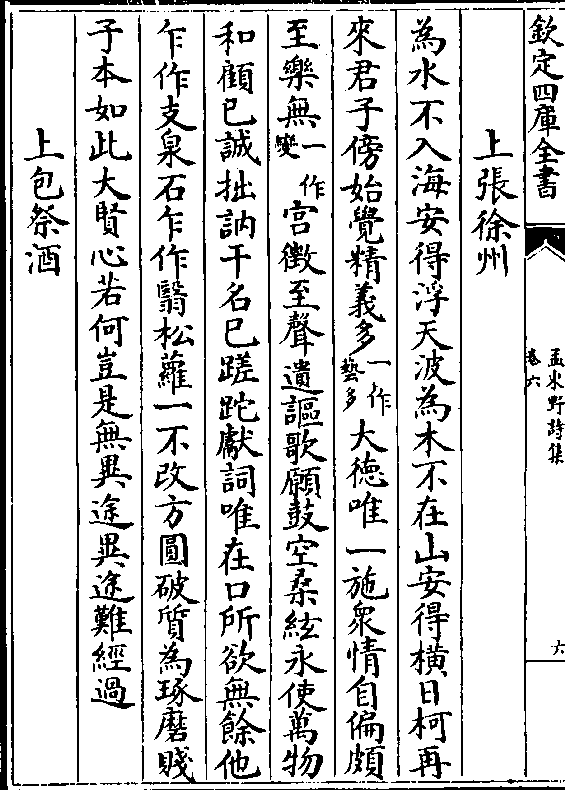 欽定四庫全書
孟東野詩集
卷六
六
上張徐州
為水不入海安得浮天波為木不在山安得橫日柯再
來君子傍始覺精義多一作藝多大德唯一施衆情自偏頗
至樂無一作變宮徵至聲遺謳歌願鼓空桑絃永使萬物
和顧已誠拙訥干名已蹉跎獻詞唯在口所欲無餘他
乍作支泉石乍作翳松蘿一不改方圓破質為琢磨賤
子本如此大賢心若何豈是無異途異途難經過
上包祭酒